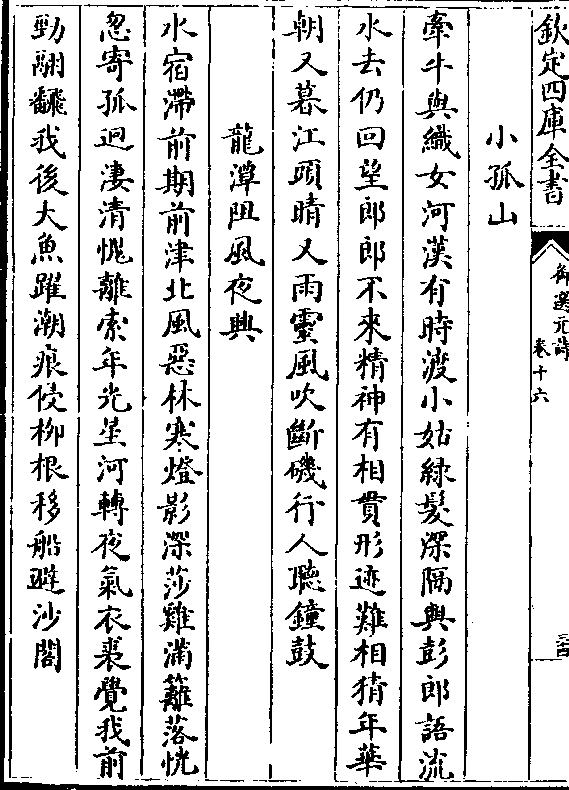 欽定四庫全書
御選元詩
卷十六
三古
小孤山
牽牛與織女河漢有時渡小姑綠髪深隔與彭郎語流
水去仍回望郎郎不來精神有相貫形迹難相猜年華
朝又暮江頭晴又雨靈風吹斷磯行人聽鐘鼓
龍潭阻風夜興
水宿滯前期前津北風惡林寒燈影深莎雞滿籬落恍
忽寄孤迥淒清愧離索年光星河轉夜氣衣裘覺我前
勁翮飜我後大魚躍潮痕侵柳根移船避沙閣